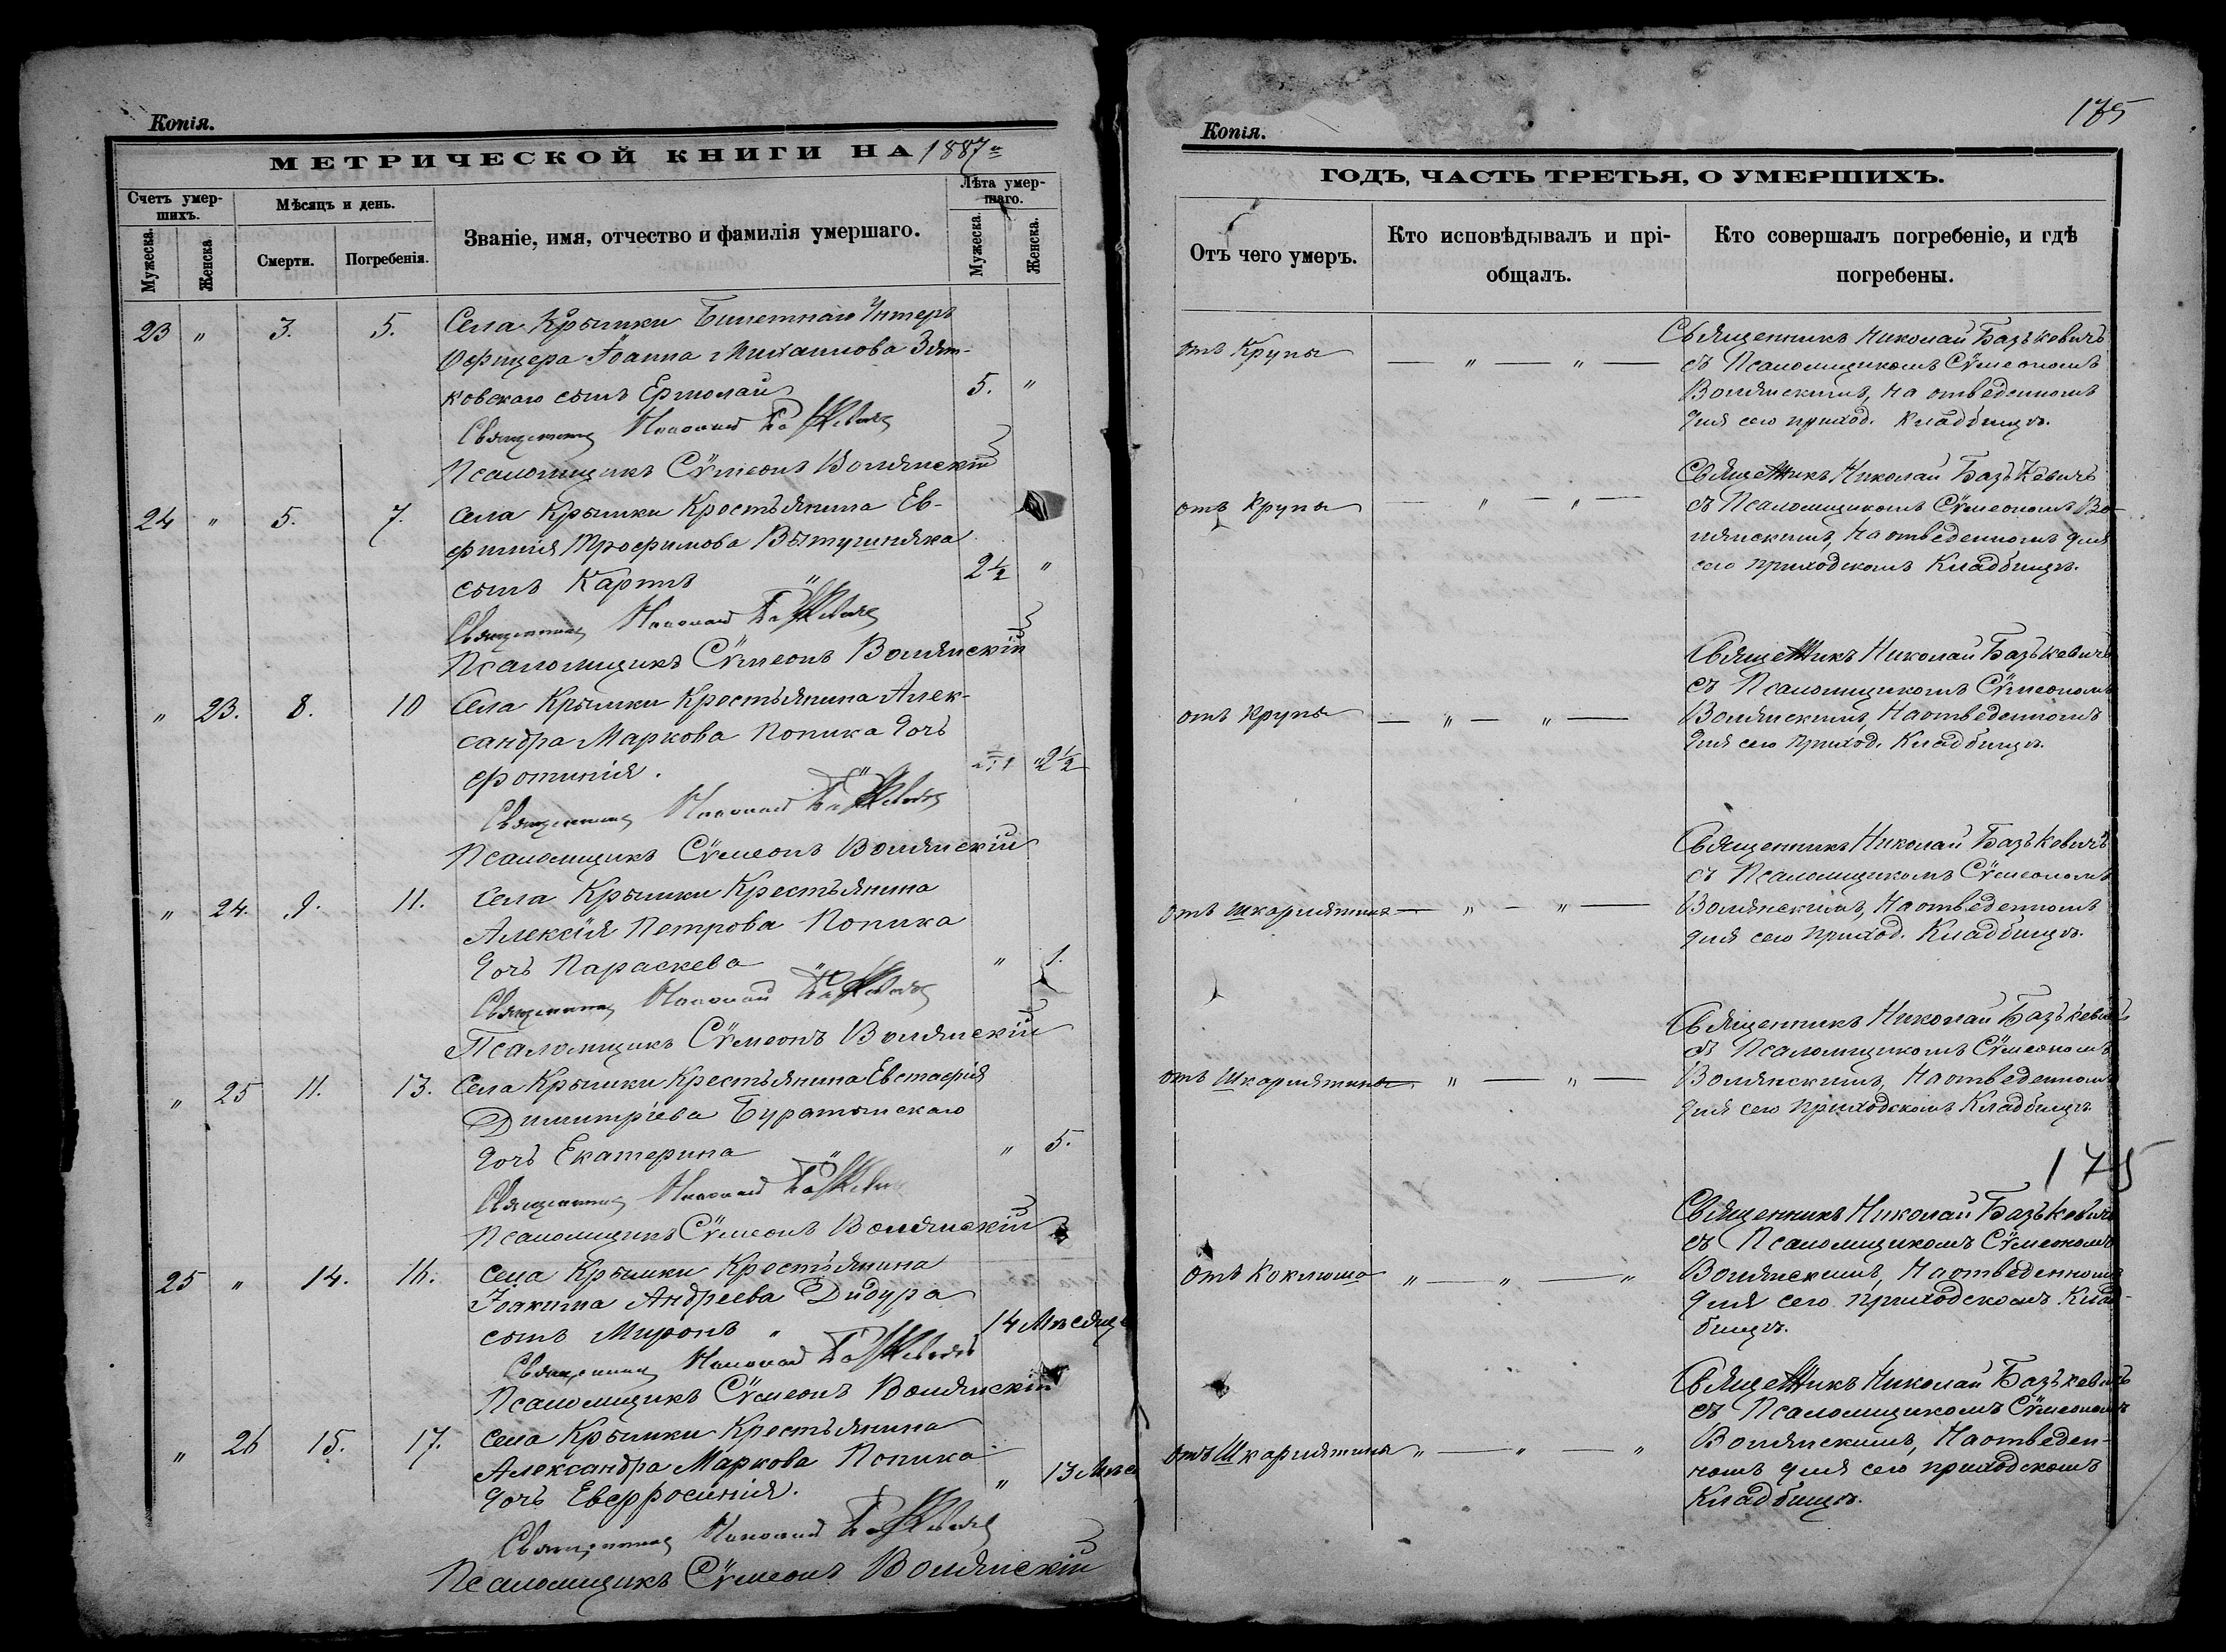 Копія.
МЕТРИЧЕСКОЙ КНИГИ НА 1887й
Счетъ умер-
шихъ.
Мѣсяцъ и день.
Званіе, имя, отчество и фамилія умершаго.
Лѣта умер-
шаго.
Мужеска.
Женска
Смерти.
Погребенія.
Мужеска.
Женска.
23 " 3. 5. Села Крымки Билетнаго Унтеръ
Офицера Іоанна Михаилова Зят-
ковскаго сынъ Ермолай 5. "
Священникъ Николай Базькевичъ
Псаломщикъ Сѵмеонъ Волянскій
24 " 5. 7. Села Крымки Крестьянина Ев-
фимія Трофимова
сынъ Карпъ 2½ "
Священникъ Николай Базькевичъ
Псаломщикъ Сѵмеонъ Волянскій
" 23. 8. 10 Села Крымки Крестьянина Алек-
сандра Маркова Попика дочь
Фотинія. " 2½
Священникъ Николай Базькевичъ
Псаломщикъ Сѵмеонъ Волянскій
" 24. 9. 11. Села Крымки Крестьянина
Алексія Петрова Попика
дочь Параскева " 1.
Священникъ Николай Базькевичъ
Псаломщикъ Сѵмеонъ Волянскій
" 25 11. 13. Села Крымки Крестьянина Евстафія
Димитріева Буратынскаго
дочь Екатерина " 5.
Священникъ Николай Базькевичъ
Псаломщикъ Сѵмеонъ Волянскій
25 " 14. 16. Села Крымки Крестьянина
Іоакима Андреева Дидура
сынъ Миронъ " 14 Мѣсяце
Священникъ Николай Базькевичъ
Псаломщикъ Сѵмеонъ Волянскій
" 26 15. 17. Села Крымки Крестьянина
Александра Маркова Попика
дочь Евфросинія. " 13 Мѣс
Священникъ Николай Базькевичъ
Псаломщикъ Сѵмеонъ Волянскій
175
Копія.
ГОДЪ, ЧАСТЬ ТРЕТЬЯ, О УМЕРШИХЪ.
Отъ чего умеръ.
Кто исповѣдывалъ и прі-
общалъ.
Кто совершалъ погребеніе, и гдѣ
погребены.
отъ Крупы — " — " —
Священникъ Николай Базькевичъ
съ Псаломщикомъ Сѵмеономъ
Волянскимъ, на отведенномъ
для сего приход. Кладбищѣ.
отъ Крупы — " — " —
Священникъ Николай Базькевичъ
съ Псаломщикомъ Сѵмеономъ Во-
лянскимъ, На отведенномъ для
сего приходскомъ Кладбищѣ.
отъ Крупы — " — " —
Священникъ Николай Базькевичъ
съ Псаломщикомъ Сѵмеономъ
Волянскимъ, На отведенномъ
для сего приход. Кладбищѣ.
отъ Шкарлятина — " — " —
Священникъ Николай Базькевичъ
съ Псаломщикомъ Сѵмеономъ
Волянскимъ, На отведенномъ
для сего приход. Кладбищѣ.
отъ Шкарлятины — " — " —
Священникъ Николай Базькевичъ
съ Псаломщикомъ Сѵмеономъ
Волянскимъ, На отведенномъ
для сего приходскомъ Кладбищѣ
175
отъ Коклюша " — " — "
Священникъ Николай Базькевичъ
съ Псаломщикомъ Сѵмеономъ
Волянскимъ, На отведенномъ
для сего приходскомъ Клад-
бищѣ.
отъ Шкарлятина " — " — "
Священникъ Николай Базькевичъ
съ Псаломщикомъ Сѵмеономъ
Волянскимъ, На отведен-
номъ для сего приходскомъ
Кладбищѣ.